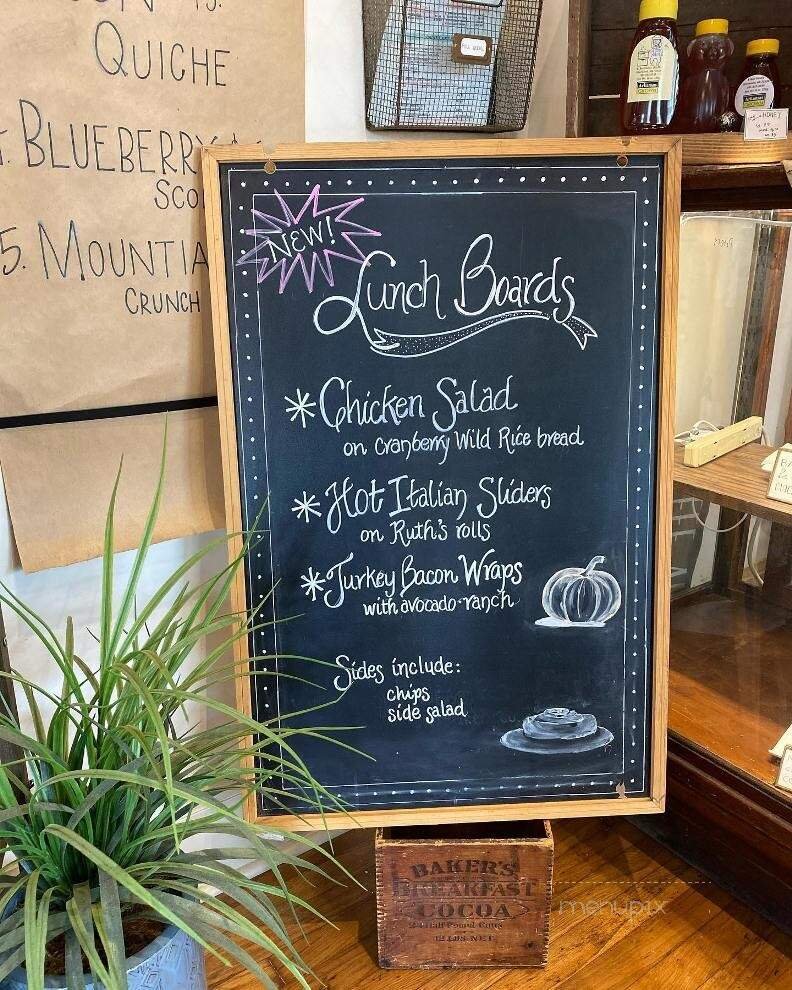 QUICHE
BLUEBERRY
SCO
5. MOUNTIA
CRUNCH
NEW!
Lunch Boards
* Chicken Salad
on Cranberry Wild Rice bread
* Hot Italian Sliders
on Ruth's rolls
* Turkey Bacon Wraps
with avocado-ranch
Sides include:
chips
side salad
BAKER'S
BREAKFAST
COCOA
12 LBS NET
menupix